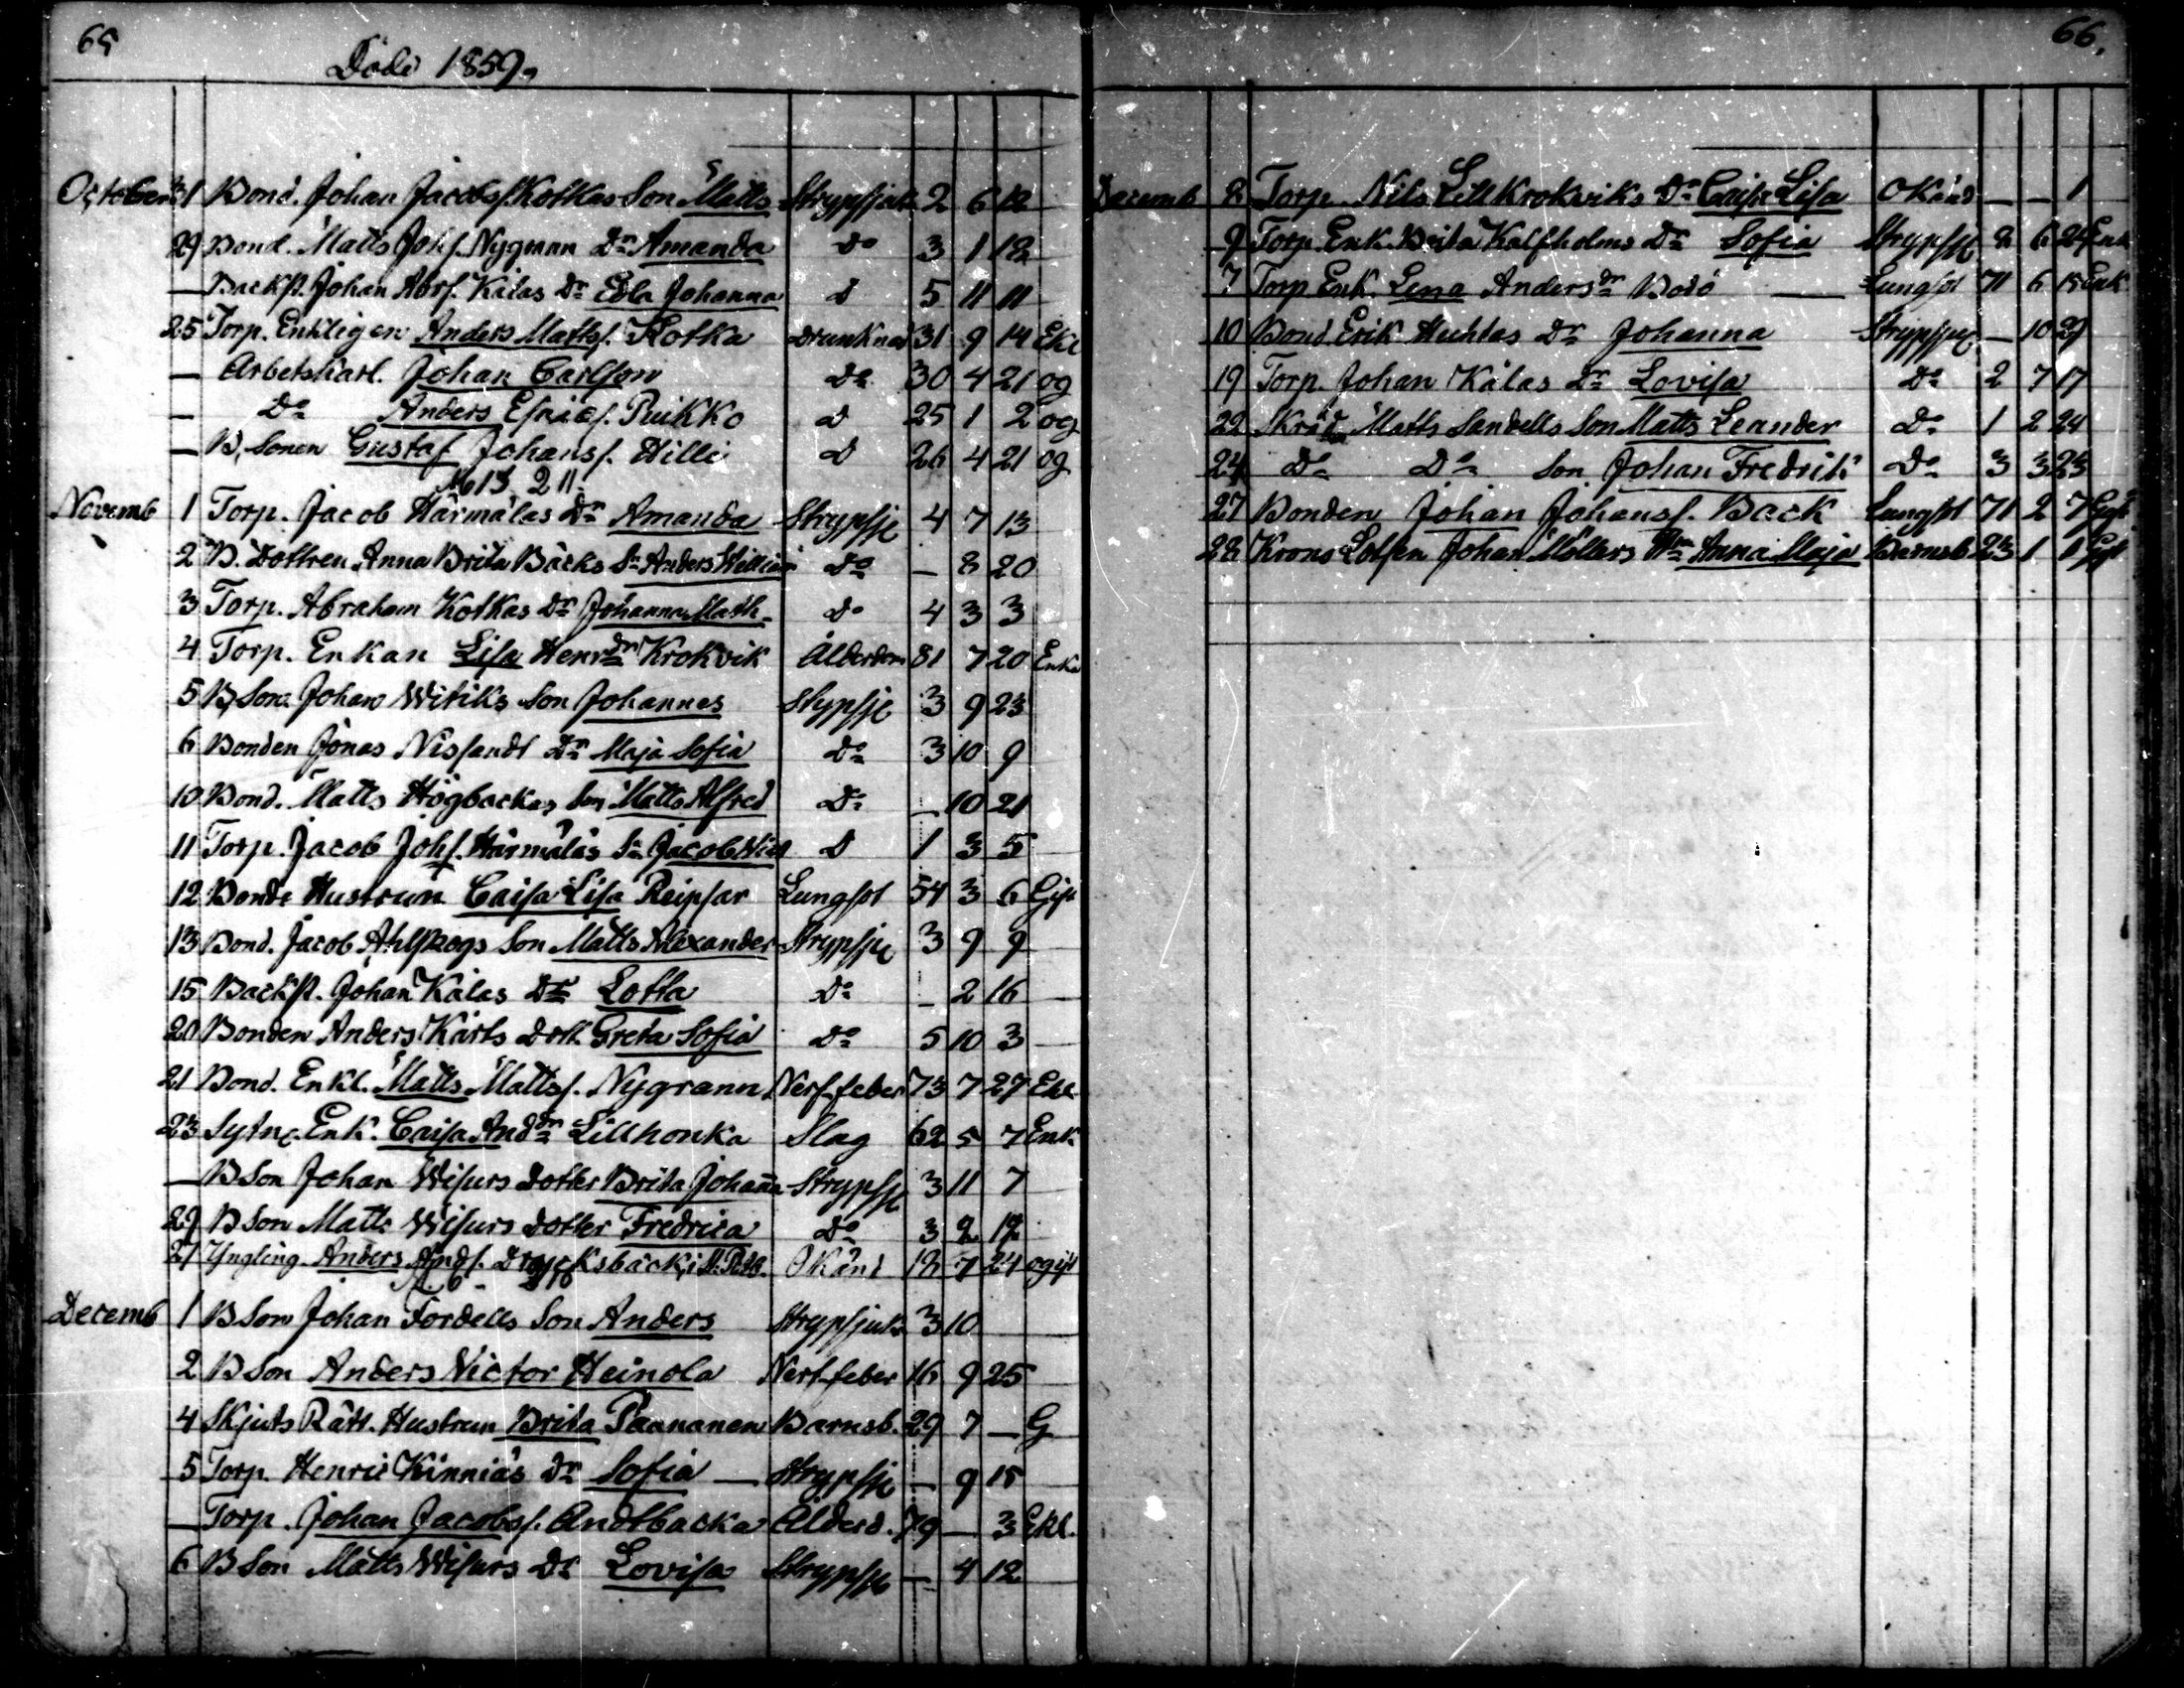 65
Döde 1859.
October 31 Bond. Johan Jacobss. Kotkas Son Matts Strypsjuk 2 6 12
29 Bond. Matts Johs. Nygman Dr Amanda Do 3 1 18
— Backst. Johan Abrs. Kälas Dr Edla Johanna d 5 11 11
25 Torp. Enkligen Anders Mattss. Kotka drunknad 31 9 14 Ekl
— Arbetskarl. Johan Carlsson Do 30 4 21 og
— Do Anders Esaiæs. Puikko d 25 1 2 og
— B. Sonen Gustaf Johanss. Hilli d 26 4 21 og
M 13 Q 11
Novemb 1 Torp. Jacob Härmälas Dr Amanda Strypsje 4 7 13
2 B. Dottren Anna Brita Bäcks Sn Anders Do — 8 20
3 Torp. Abraham Kotkas Dr Johanna Math. Do 4 3 3
4 Torp. Enkan Lisa Henrdr Krokvik Ålderdom 81 7 20 Enka
5 B, Son Johan Witiks Son Johannes Stypsje 3 9 23
6 Bonden Jonas Nissandt Dr Maja Sofia Do 3 10 9
10 Bond. Matts Högbackas Son Matts Alfred Do — 10 21
11 Torp. Jacob Johs. Härmälas Sn Jacob D 1 3 5
12 Bonde Hustrun Caisa Lisa Reipsar Lungsot 54 3 6 Gift
13 Bond. Jacob Ahlskogs Son Matts Alexander Strypsje 3 9 9
15 Backst. Johan Kälas Dr Lotta Do — 2 16
20 Bonden Anders Kärts dott. Greta Sofia Do 5 10 3
21 Bond. Enkl. Matts Mattss. Nygrann Nerf-feber 73 7 27 Ekl
23 Sytn. Enk. Caisa Anddr Lillhonka Slag 62 5 7 Enk
— B Son Johan Wisurs dotter Brita Johana Strypsje 3 11 7
29 B Son Matts Wisurs dotter Fredrica Do 3 2 12
27 Yngling Anders Ands. Drycksbäck, i Okänd 18 7 24 ogift
Decemb 1 B Son Johan Fordells Son Anders Strypsjuk 3 10
2 B Son Anders Victor Heinola Nerf-feber 16 9 25
4 Skjuts Rätt. Hustrun Brita Paananen Barnsb. 29 7 — G
5 Torp. Henric Kinniäs Dr Sofia — Strypsje — 9 15
— Torp. Johan Jacobss. Andtbacka Ålderd. 79 — 3 Ekl.
6 B Son Matts Wisurs Dr Lovisa Strypsje — 4 12
66.
Decemb 2 Torp. Nils Lill Krokviks Dr Caisa Lisa Okänd — — 1
9 Torp. Enk. Brita Kalfholms Dr Sofia Strypsje 2 6 Enk
7 Torp. Enk. Lena Andersdr Bodö — Lungsot 71 6 15 Enk
10 Bond Erik Huhtas Dr Johanna Strypsje — 10 29
19 Torp. Johan Kälas Dr Lovisa Do 2 7 17
22 Skräd. Matts Sandells Son Matts Leander Do 1 2 24
24 Do Do Son Johan Fredrik Do 3 3 23
27 Bonden Johan Johanss. Back Lungsot 71 2 7 Gift
28 Krono Lotsen Johan Möllers Hu Anna Maja Barnsb 23 1 1 Gift